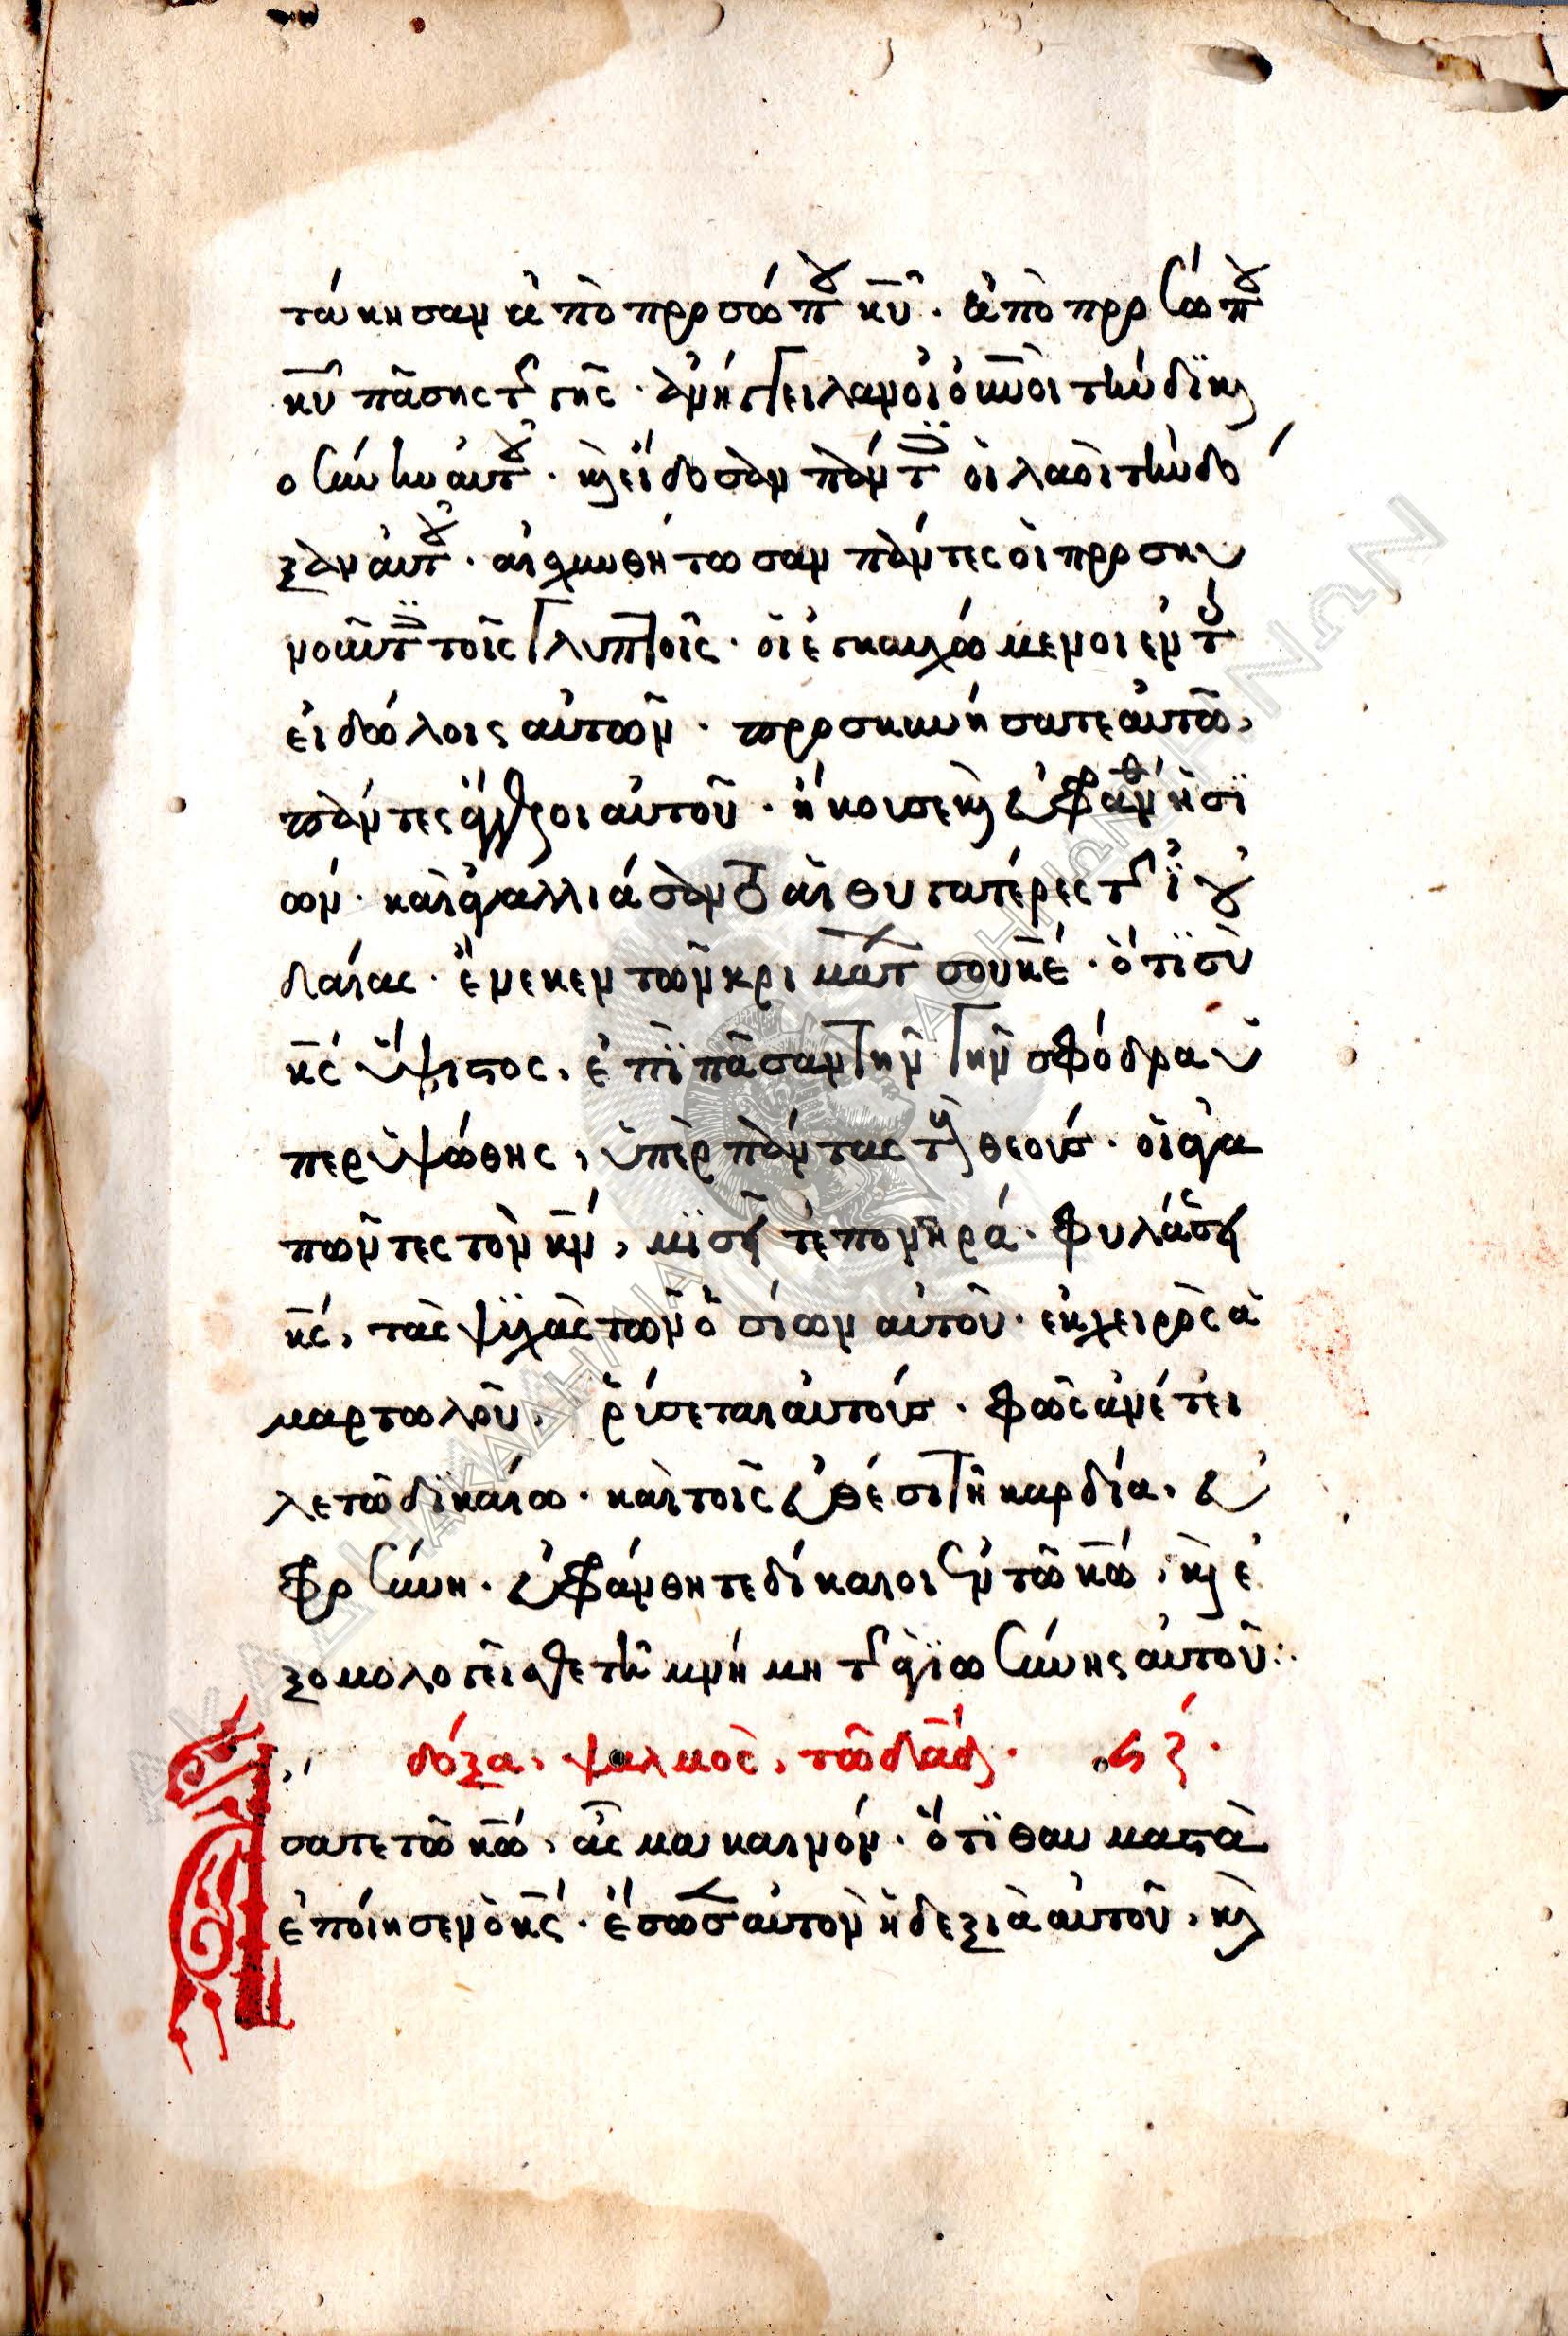 τάκησαν ἀπὸ προσώπου κῡ· ἀπὸ προσώπου
κῡ πάσης τῆς γῆς· ἀνήγγειλαν οἱ οὐνοὶ τὴν δικαι
οσύνην αὐτοῦ· καὶ εἴδοσαν πάντες οἱ λαοὶ τὴν δό
ξαν αὐτοῦ· αἰσχυνθήτωσαν πάντες οἱ προσκυ
νοῦντες τοῖς γλυπτοῖς· οἱ ἐγκαυχώμενοι ἐν τοῖς
εἰδώλοις αὐτῶν· προσκυνήσατε αὐτῶ,
πάντες ἄγγελοι αὐτοῦ· ἤκουσε καὶ εὐφράνθη ἡ σϊ
ών· καὶ ἠγαλλιάσαντο αἱ θυγατέρες τῆς ἰου
δαίας· ἕνεκεν τῶν κριμάτων σου κε̄· ὅτι σὺ
κς̄ ὕψιστος, ἐπὶ πᾶσαν τὴν γῆν σφόδρα ὑ
περυψώθης, ὑπὲρ πάντας τοὺς θεούς· οἱ ἀγα
πῶντες τὸν κν̄, μισεῖτε πονηρά· φυλάσσει
κς̄, τὰς ψυχὰς τῶν ὁσίων αὐτοῦ· ἐκ χειρὸς ἁ
μαρτωλοῦ, ῥύσεται αὐτούς· φῶς ἀνέτει
λε τῶ δικαίω· καὶ τοῖς εὐθέσι τῆ καρδία, εὐ
φροσύνη· εὐφράνθητε δίκαιοι ἐν τῶ κω̄, καὶ ἐ
ξομολογεῖσθε τῆ μνήμη τῆς ἁγιωσύνης αὐτοῦ:·
δόξα, ψαλμὸς, τῶ δᾱδ· ϟζ·
ᾌσατε τῶ κω̄, ᾆσμα καινόν· ὅτι θαυμαστὰ
ἐποίησεν ὁ κς̄· ἔσωσεν αὐτὸν ἡ δεξιὰ αὐτοῦ, καὶ
ΑΚΑΔΗΜΙΑ ΑΘΗΝΩΝ